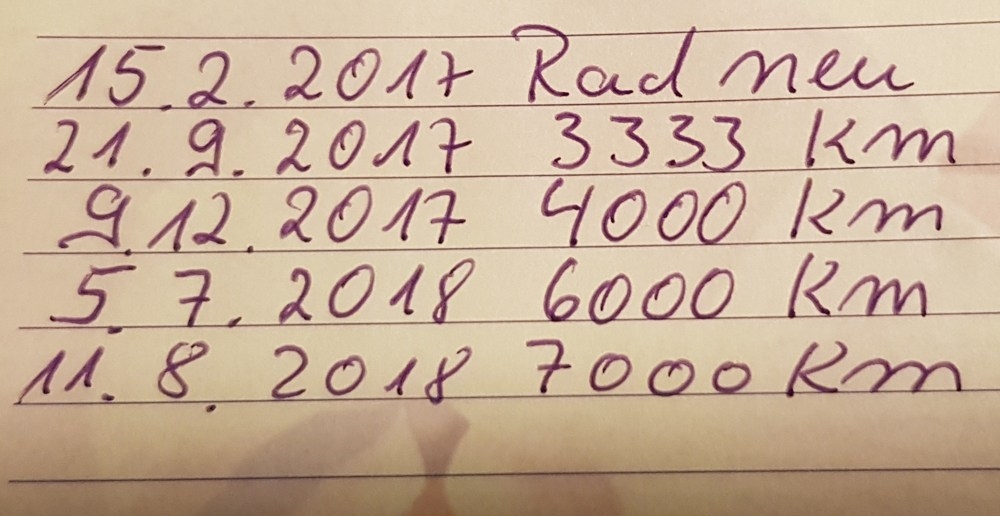 15.2.2017 Rad neu
21.9.2017 3333 Km
9.12.2017 4000 Km
5.7.2018 6000 Km
11.8.2018 7000 Km